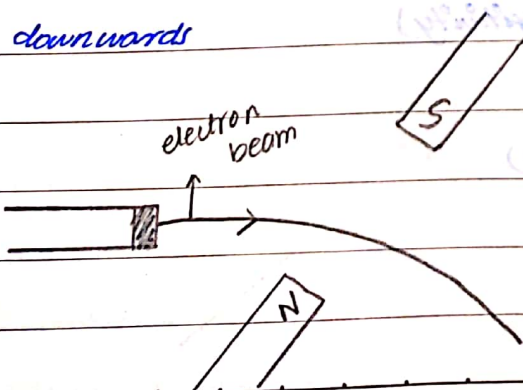 downwards
S
electron
beam
N